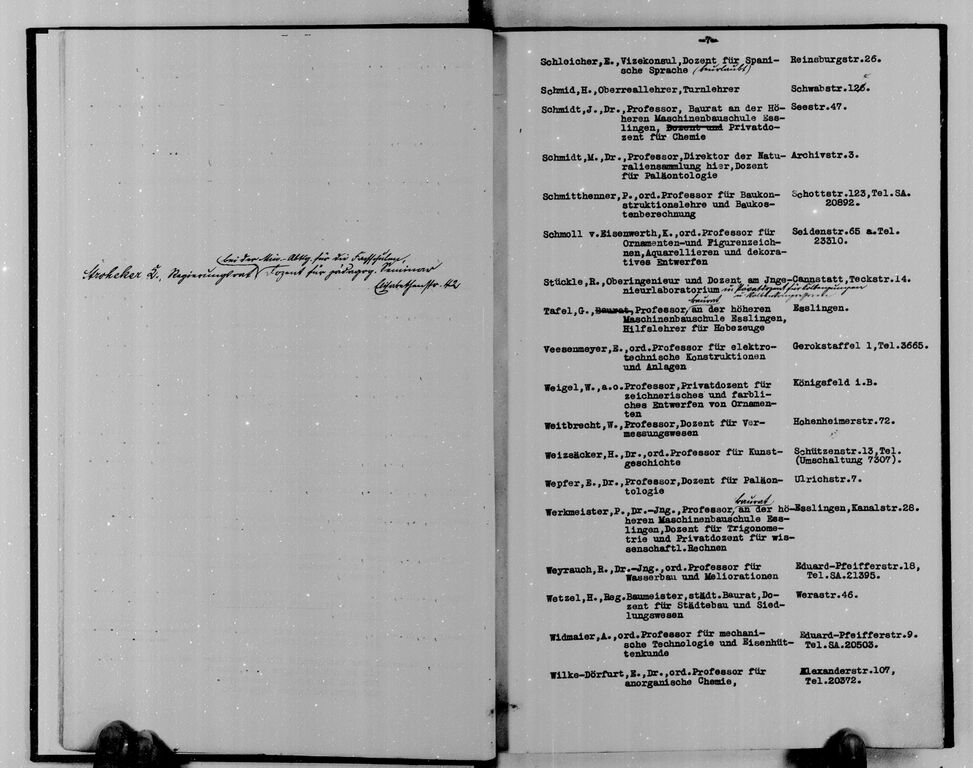 bei der Min. Abtlg. für die Fachschulen,
Stroheker, Regierungsrat Dozent für pädagog. Seminar
Elisabethenstr.
-7-
Schleicher,E.,Vizekonsul,Dozent für Spani- Reinsburgstr.26.
sche Sprache (beurlaubt)
Schmid,H.,Oberreallehrer,Turnlehrer Schwabstr.
Schmidt,J.,Dr.,Professor, Baurat an der Hö- Seestr.47.
heren Maschinenbauschule Ess-
lingen, Dozent und Privatdo-
zent für Chemie
Schmidt,M.,Dr.,Professor,Direktor der Natu- Archivstr.3.
raliensammlung hier,Dozent
für Paläontologie
Schmitthenner,P.,ord.Professor für Baukon- Schottstr.123,Tel.SA.
struktionslehre und Baukos- 20892.
tenberechnung
Schmoll v.Eisenwerth,K.,ord.Professor für Seidenstr.65 a.Tel.
Ornamenten-und Figurenzeich- 23310.
nen,Aquarellieren und dekora-
tives Entwerfen
Stückle,R.,Oberingenieur und Dozent am Jnge-Cannstatt,Teckstr.14.
nieurlaboratorium u. Privatdozent für
baurat
Tafel,G.,Baurat,Professor an der höheren Esslingen.
Maschinenbauschule Esslingen,
Hilfslehrer für Hebezeuge
Veesenmeyer,E.,ord.Professor für elektro- Gerokstaffel 1,Tel.3665.
technische Konstruktionen
und Anlagen
Weigel,W.,a.o.Professor,Privatdozent für Königsfeld i.B.
zeichnerisches und farbli-
ches Entwerfen von Ornamen-
ten
Weitbrecht,W.,Professor,Dozent für Ver- Hohenheimerstr.72.
messungswesen
Weizsäcker,H.,Dr.,ord.Professor für Kunst- Schützenstr.13,Tel.
geschichte (Umschaltung 7307).
Wepfer,E.,Dr.,Professor,Dozent für Paläon- Ulrichstr.7.
tologie
baurat
Werkmeister,P.,Dr.-Jng.,Professor an der hö-Esslingen,Kanalstr.28.
heren Maschinenbauschule Ess-
lingen,Dozent für Trigonome-
trie und Privatdozent für wis-
senschaftl.Rechnen
Weyrauch,R.,Dr.-Jng.,ord.Professor für Eduard-Pfeifferstr.18,
Wasserbau und Meliorationen Tel.SA.21395.
Wetzel,H.,Reg.Baumeister,städt.Baurat,Do- Werastr.46.
zent für Städtebau und Sied-
lungswesen
Widmaier,A.,ord.Professor für mechani- Eduard-Pfeifferstr.9.
sche Technologie und Eisenhüt- Tel.SA.20503.
tenkunde
Wilke-Dörfurt,E.,Dr.,ord.Professor für Alexanderstr.107,
anorganische Chemie, Tel.20372.